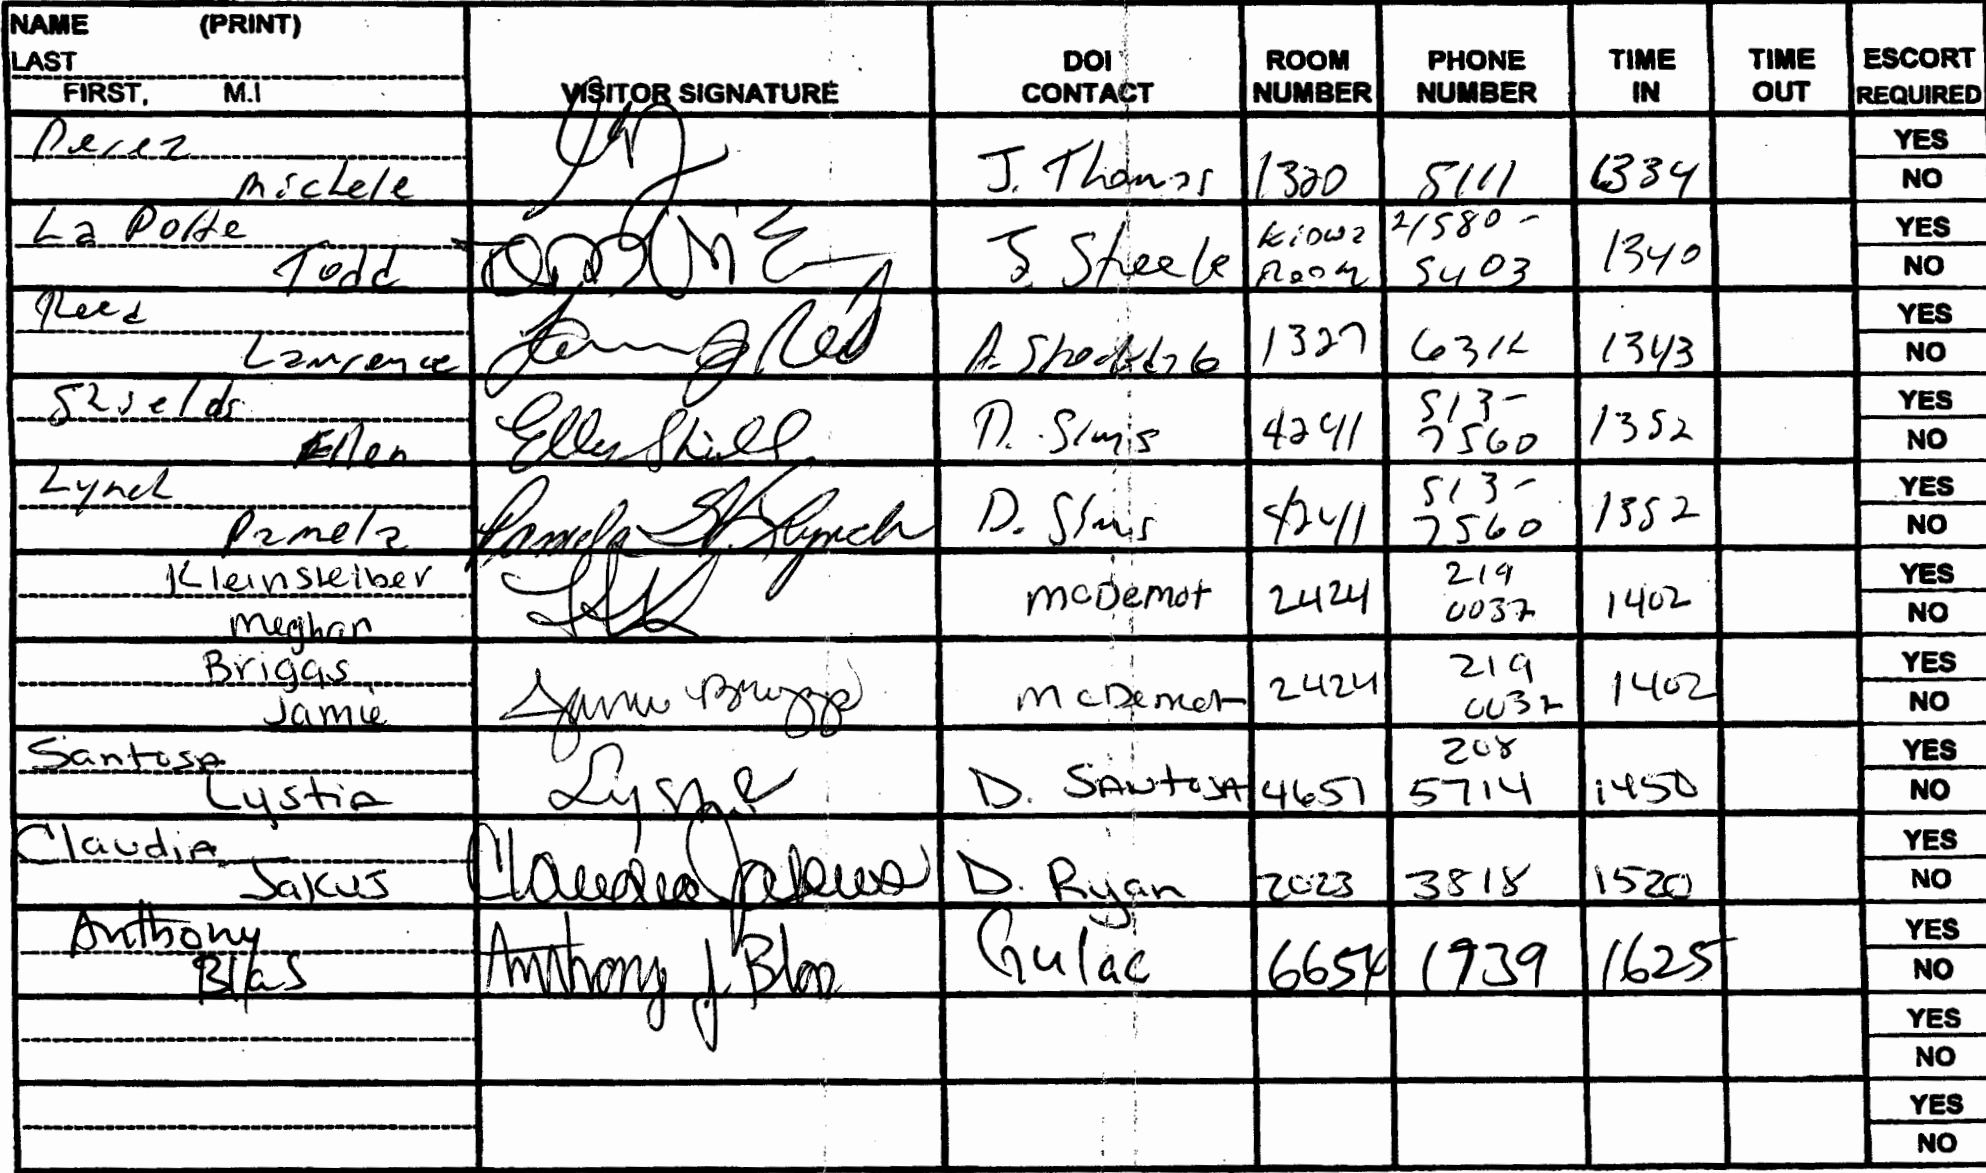 NAME (PRINT)
LAST
FIRST, M.I
VISITOR SIGNATURE
DOI CONTACT
ROOM NUMBER
PHONE NUMBER
TIME IN
TIME OUT
ESCORT REQUIRED
Perez
Michele
J. Thomas
1320
5111
1334
YES
NO
La Porte
Todd
J Steele
Kiowa Room
21580-
5403
1340
YES
NO
Reed
Lawrence
Reed
A.
1327
1343
YES
NO
Shields
Ellen
Ellen Shields
D. Sims
4241
513-
7560
1352
YES
NO
Lynch
Pamela
Pamela Lynch
D. Sims
4241
513-
7560
1352
YES
NO
Kleinsleiber
Meghan
McDemot
2424
219
0037
1402
YES
NO
Briggs
Jamie
Jamie Briggs
McDemot
2424
219
0037
1402
YES
NO
Santosa
Lystia
Lystia
D. SANTOSA
4657
208
5714
1450
YES
NO
Claudia
Jakus
Claudia Jakus
D. Ryan
2023
3818
1520
YES
NO
Anthony
Blas
Anthony J Blas
Gulac
6654
1939
1625
YES
NO
YES
NO
YES
NO